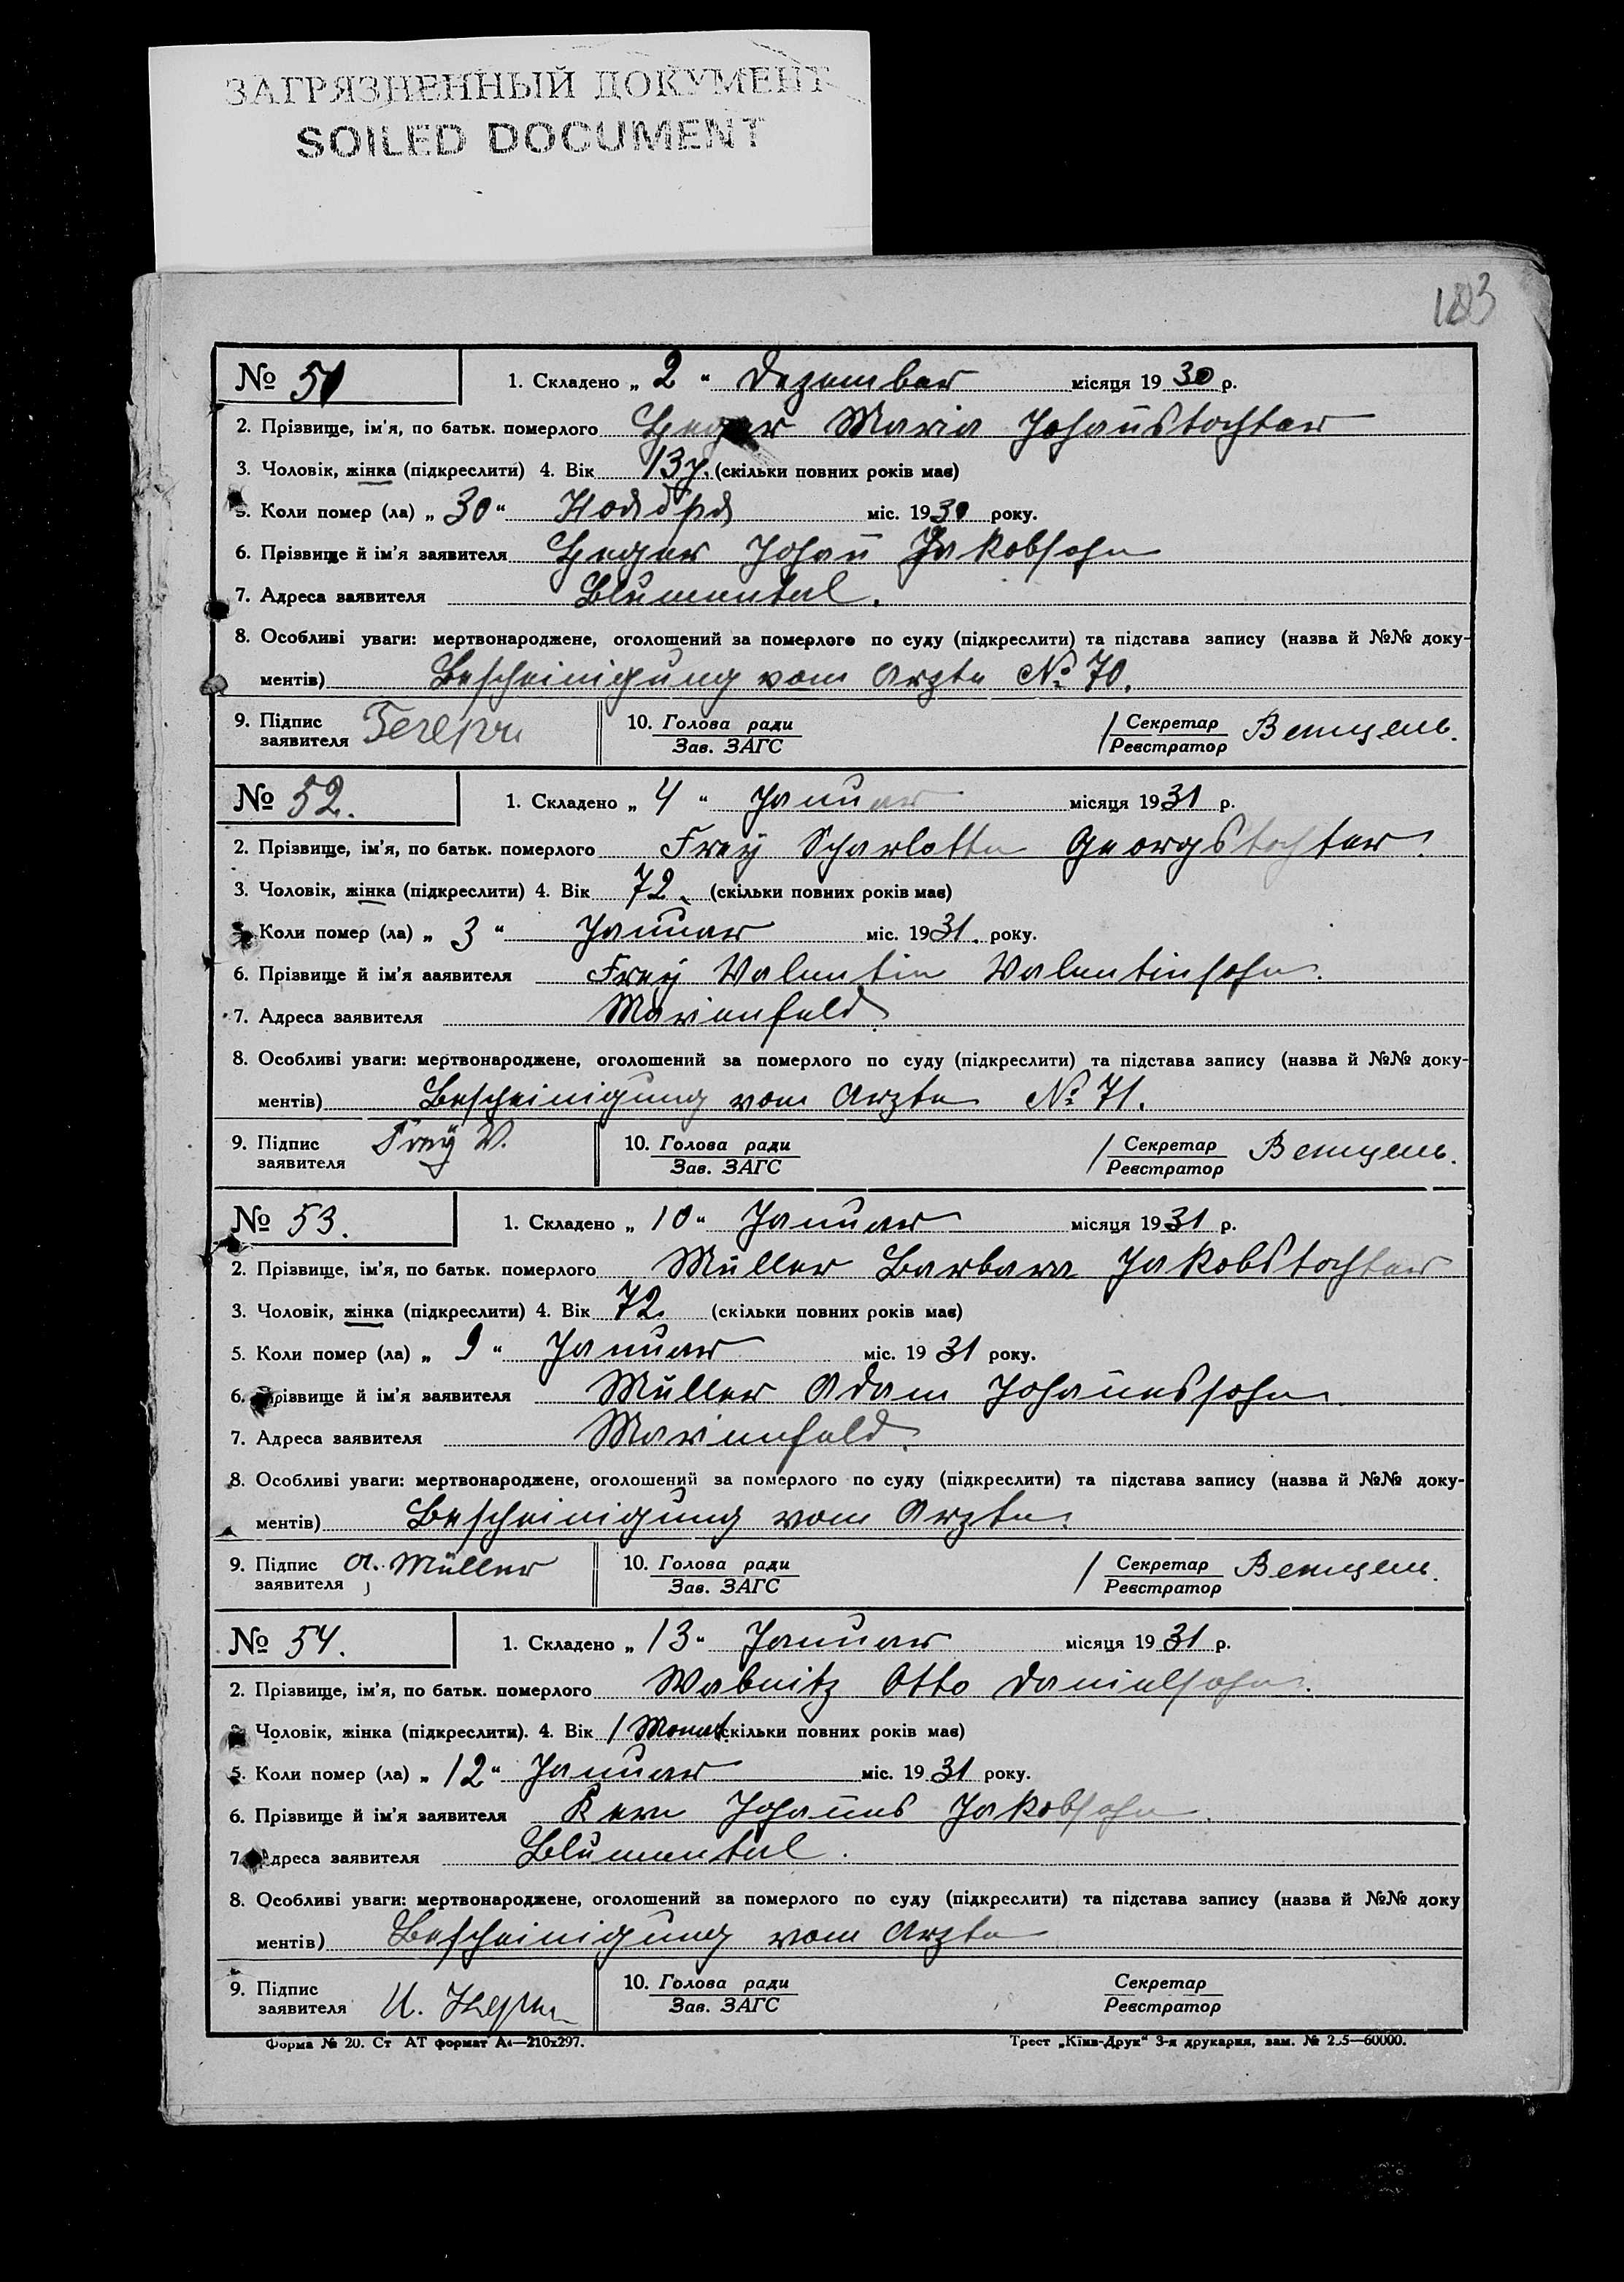 ЗАГРЯЗНЕННЫЙ ДОКУМЕНТ
SOILED DOCUMENT
183
№ 51 1. Складено „ 2 “ Dezember місяця 1930 р.
2. Прізвище, ім'я, по батьк. померлого Heger Maria Johanstochter
3. Чоловік, жінка (підкреслити) 4. Вік 13 J. (скільки повних років має)
5. Коли помер (ла) „ 30 “ Ноября міс. 1930 року.
6. Прізвище й ім'я заявителя Heger Johan Jakobsohn
7. Адреса заявителя Blumental.
8. Особливі уваги: мертвонароджене, оголошений за померлого по суду (підкреслити) та підстава запису (назва й №№ доку-
ментів) Bescheinigung vom Arzte № 70.
9. Підпис заявителя 10. Голова ради Зав. ЗАГС Секретар Реєстратор Венцель.
№ 52. 1. Складено „ 4 “ Januar місяця 1931 р.
2. Прізвище, ім'я, по батьк. померлого Frey Scharlotte Georgstochter.
3. Чоловік, жінка (підкреслити) 4. Вік 72. (скільки повних років має)
Коли помер (ла) „ 3 “ Januar міс. 1931. року.
6. Прізвище й ім'я заявителя Frey Valentin Valentinsohn.
7. Адреса заявителя Marienfeld.
8. Особливі уваги: мертвонароджене, оголошений за померлого по суду (підкреслити) та підстава запису (назва й №№ доку-
ментів) Bescheinigung vom Arzte № 71.
9. Підпис заявителя Frey V. 10. Голова ради Зав. ЗАГС Секретар Реєстратор Венцель.
№ 53. 1. Складено „ 10 “ Januar місяця 1931 р.
2. Прізвище, ім'я, по батьк. померлого Müller Barbara Jakobstochter
3. Чоловік, жінка (підкреслити) 4. Вік 72. (скільки повних років має)
5. Коли помер (ла) „ 9 “ Januar міс. 1931 року.
6. Прізвище й ім'я заявителя Müller Adam Johannessohn.
7. Адреса заявителя Marienfeld.
8. Особливі уваги: мертвонароджене, оголошений за померлого по суду (підкреслити) та підстава запису (назва й №№ доку-
ментів) Bescheinigung vom Arzte.
9. Підпис заявителя A. Müller 10. Голова ради Зав. ЗАГС Секретар Реєстратор Венцель.
№ 54. 1. Складено „ 13 “ Januar місяця 1931 р.
2. Прізвище, ім'я, по батьк. померлого Wabnitz Otto Danielsohn.
Чоловік, жінка (підкреслити). 4. Вік 1 Monat (скільки повних років має)
5. Коли помер (ла) „ 12 “ Januar міс. 1931 року.
6. Прізвище й ім'я заявителя Kern Johannes Jakobsohn.
7. Адреса заявителя Blumental.
8. Особливі уваги: мертвонароджене, оголошений за померлого по суду (підкреслити) та підстава запису (назва й №№ доку
ментів) Bescheinigung vom Arzte
9. Підпис заявителя И. Керн 10. Голова ради Зав. ЗАГС Секретар Реєстратор
Форма № 20. Ст АТ формат А4—210x297. Трест „Київ-Друк“ 3-я друкарня, зам. № 60000.